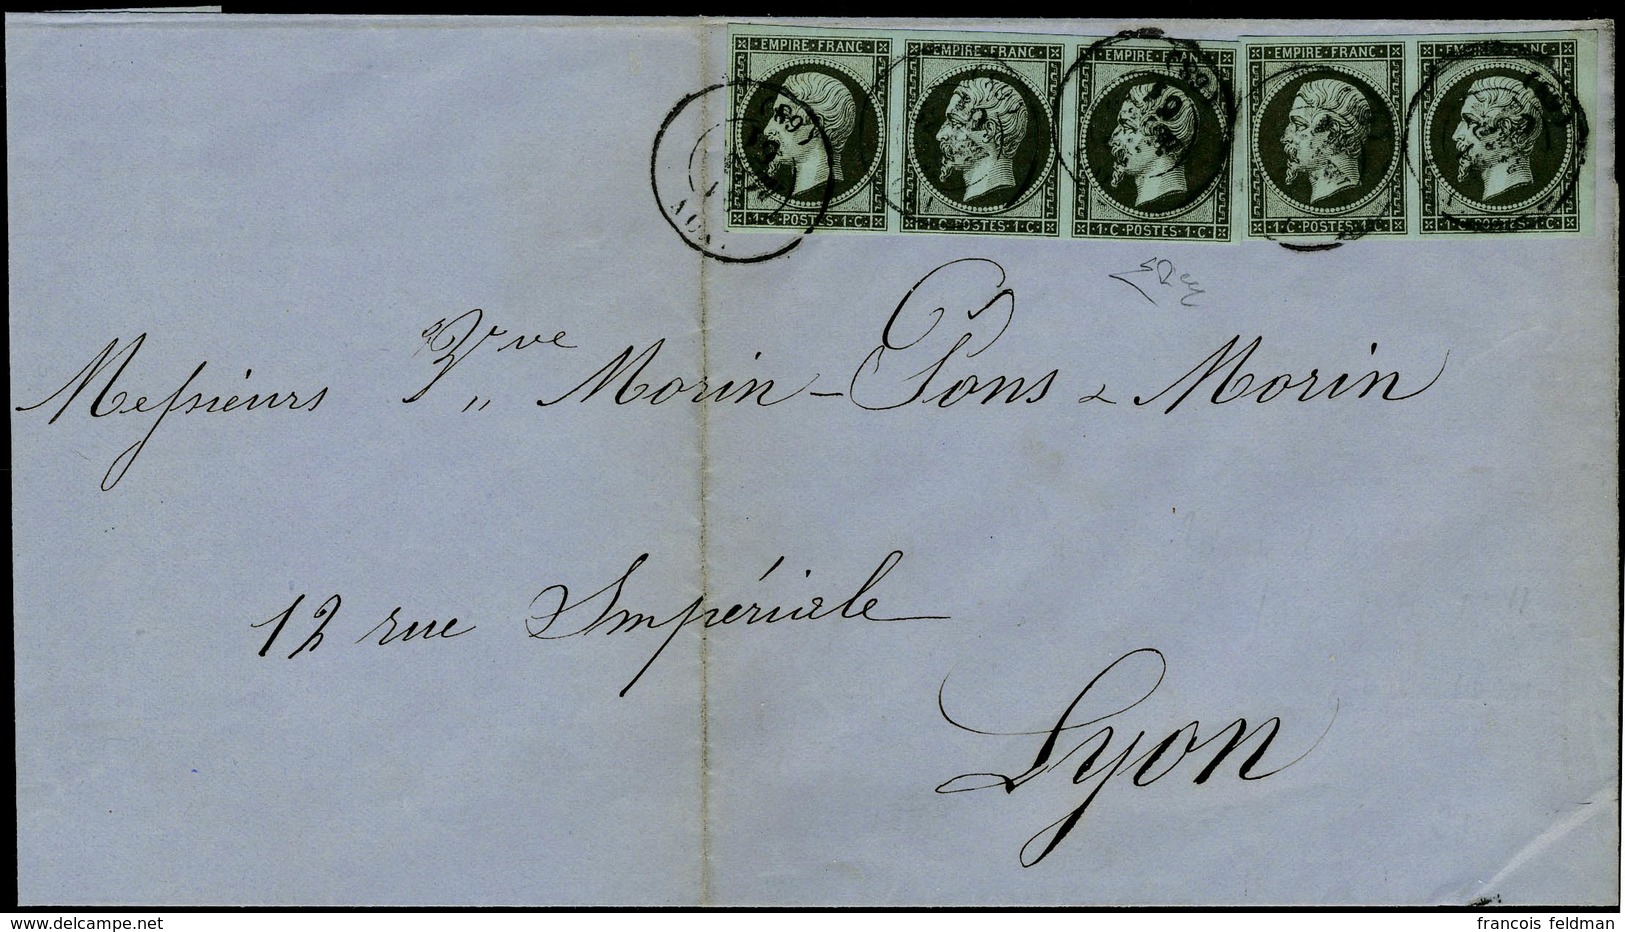 EMPIRE·FRANC· EMPIRE·FRANC· EMPIRE·FRANC· EMPIRE·FRANC· EMPIRE·FRANC·
1·C·POSTES·1·C· 1·C·POSTES·1·C· 1·C·POSTES·1·C· 1·C·POSTES·1·C· 1·C·POSTES·1·C·
Messieurs Vve Morin-Pons & Morin
12 rue Impériale
Lyon
www.delcampe.net
francois feldman